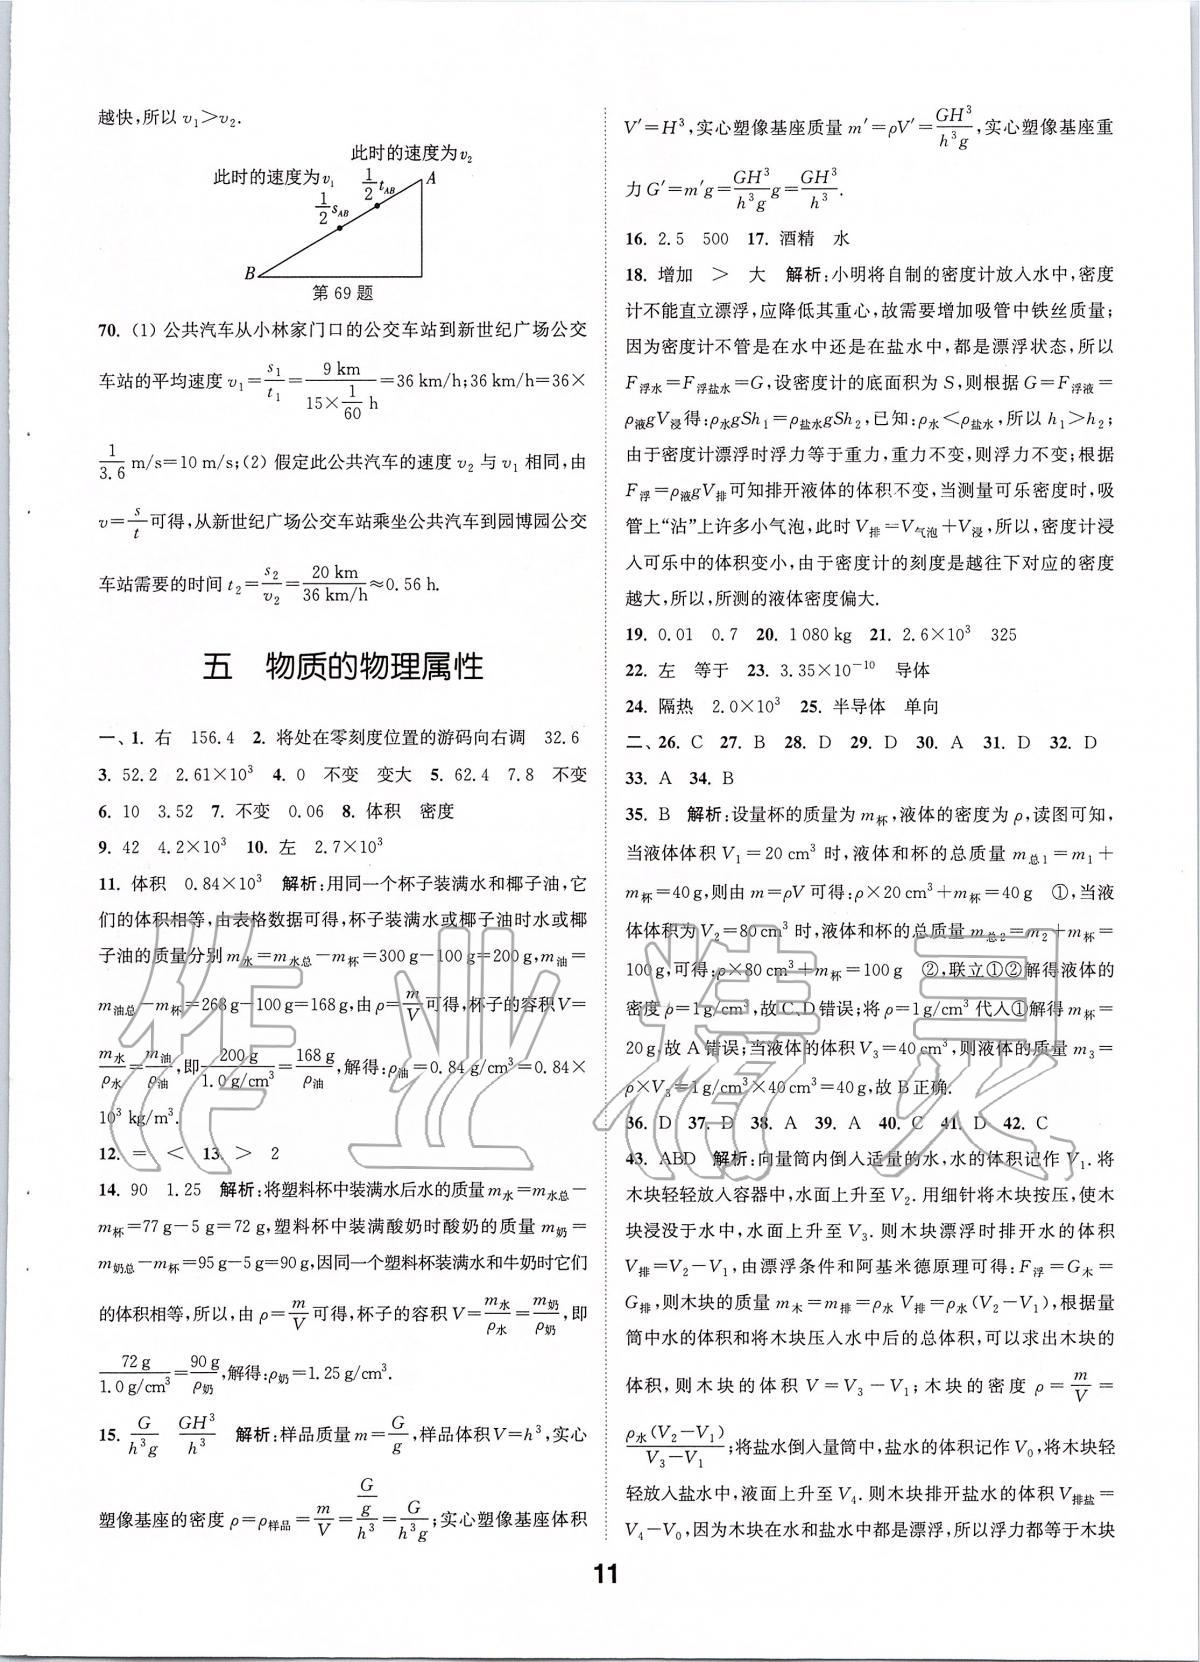 越快,所以 v₁＞v₂.
此时的速度为v₂
此时的速度为v₁ 1/2 t_AB A
1/2 s_AB
B
第 69 题
70. (1) 公共汽车从小林家门口的公交车站到新世纪广场公交
车站的平均速度 v₁＝s₁/t₁＝9 km/(15×1/60 h)＝36 km/h;36 km/h＝36×
1/3.6 m/s＝10 m/s;(2) 假定此公共汽车的速度 v₂ 与 v₁ 相同,由
v＝s/t可得,从新世纪广场公交车站乘坐公共汽车到园博园公交
车站需要的时间 t₂＝s₂/v₂＝20 km/36 km/h≈0.56 h.
五 物质的物理属性
一、1. 右 156.4 2. 将处在零刻度位置的游码向右调 32.6
3. 52.2 2.61×10³ 4. 0 不变 变大 5. 62.4 7.8 不变
6. 10 3.52 7. 不变 0.06 8. 体积 密度
9. 42 4.2×10³ 10. 左 2.7×10³
11. 体积 0.84×10³ 解析:用同一个杯子装满水和椰子油,它
们的体积相等,由表格数据可得,杯子装满水或椰子油时水或椰
子油的质量分别 m水＝m水总－m杯＝300 g－100 g＝200 g,m油＝
m油总－m杯＝268 g－100 g＝168 g,由 ρ＝m/V可得,杯子的容积 V＝
m水/ρ水＝m油/ρ油,即200 g/1.0 g/cm³＝168 g/ρ油,解得:ρ油＝0.84 g/cm³＝0.84×
10³ kg/m³.
12. ＝ ＜ 13. ＞ 2
14. 90 1.25 解析:将塑料杯中装满水后水的质量 m水＝m水总－
m杯＝77 g－5 g＝72 g,塑料杯中装满酸奶时酸奶的质量 m奶＝
m奶总－m杯＝95 g－5 g＝90 g,因同一个塑料杯装满水和牛奶时它们
的体积相等,所以,由 ρ＝m/V可得,杯子的容积 V＝m水/ρ水＝m奶/ρ奶,即
72 g/1.0 g/cm³＝90 g/ρ奶,解得:ρ奶＝1.25 g/cm³.
15. G/h³g GH³/h³ 解析:样品质量 m＝G/g,样品体积 V＝h³,实心
塑像基座的密度 ρ＝ρ样品＝m/V＝(G/g)/h³＝G/h³g;实心塑像基座体积
V′＝H³,实心塑像基座质量 m′＝ρV′＝GH³/h³g,实心塑像基座重
力 G′＝m′g＝GH³/h³g g＝GH³/h³.
16. 2.5 500 17. 酒精 水
18. 增加 ＞ 大 解析:小明将自制的密度计放入水中,密度
计不能直立漂浮,应降低其重心,故需要增加吸管中铁丝质量;
因为密度计不管是在水中还是在盐水中,都是漂浮状态,所以
F浮水＝F浮盐水＝G,设密度计的底面积为 S,则根据 G＝F浮液＝
ρ液gV浸得:ρ水gSh₁＝ρ盐水gSh₂,已知:ρ水＜ρ盐水,所以 h₁＞h₂;
由于密度计漂浮时浮力等于重力,重力不变,则浮力不变;根据
F浮＝ρ液gV排可知排开液体的体积不变,当测量可乐密度时,吸
管上“沾”上许多小气泡,此时 V排＝V气泡＋V浸,所以,密度计浸
入可乐中的体积变小,由于密度计的刻度是越往下对应的密度
越大,所以,所测的液体密度偏大.
19. 0.01 0.7 20. 1 080 kg 21. 2.6×10³ 325
22. 左 等于 23. 3.35×10⁻¹⁰ 导体
24. 隔热 2.0×10³ 25. 半导体 单向
二、26. C 27. B 28. D 29. D 30. A 31. D 32. D
33. A 34. B
35. B 解析:设量杯的质量为 m杯,液体的密度为 ρ,读图可知,
当液体体积 V₁＝20 cm³ 时,液体和杯的总质量 m总1＝m₁＋
m杯＝40 g,则由 m＝ρV 可得:ρ×20 cm³＋m杯＝40 g ①,当液
体体积为 V₂＝80 cm³ 时,液体和杯的总质量 m总2＝m₂＋m杯＝
100 g,可得:ρ×80 cm³＋m杯＝100 g ②,联立①②解得液体的
密度 ρ＝1 g/cm³,故 C、D 错误;将 ρ＝1 g/cm³ 代入①解得 m杯＝
20 g,故 A 错误;当液体的体积 V₃＝40 cm³,则液体的质量 m₃＝
ρ×V₃＝1 g/cm³×40 cm³＝40 g,故 B 正确.
36. D 37. D 38. A 39. A 40. C 41. D 42. C
43. ABD 解析:向量筒内倒入适量的水,水的体积记作 V₁.将
木块轻轻放入容器中,水面上升至 V₂.用细针将木块按压,使木
块浸没于水中,水面上升至 V₃.则木块漂浮时排开水的体积
V排＝V₂－V₁,由漂浮条件和阿基米德原理可得:F浮＝G木＝
G排,则木块的质量 m木＝m排＝ρ水 V排＝ρ水(V₂－V₁),根据量
筒中水的体积和将木块压入水中后的总体积,可以求出木块的
体积,则木块的体积 V＝V₃－V₁;木块的密度 ρ＝m/V＝
ρ水(V₂－V₁)/(V₃－V₁);将盐水倒入量筒中,盐水的体积记作 V₀,将木块轻
轻放入盐水中,液面上升至 V₄.则木块排开盐水的体积 V排盐＝
V₄－V₀,因为木块在水和盐水中都是漂浮,所以浮力都等于木块
11
作业精灵